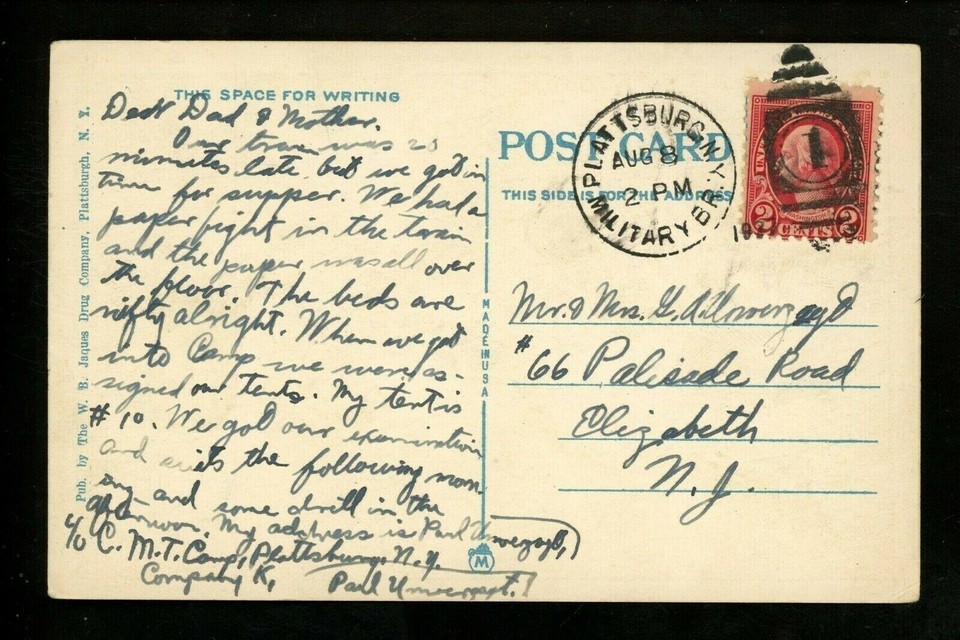 THIS SPACE FOR WRITING
Dear Dad & Mother.
Our train was 20
minutes late, but we got in
time for supper. We had a
paper fight in the train
and the paper was all over
the floor. The beds are
nifty alright. When we got
into Camp we were as-
signed our tents. My tent is
#10. We got our examination
and suits the following morn-
ing and some drill in the
afternoon. My address is Paul
c/o C. M. T. Camp, Plattsburg, N. Y.
Company K,
Paul
Pub. by The W. B. Jaques Drug Company, Plattsburgh, N. Y.
MADE IN USA
M
POST CARD
THIS SIDE IS FOR THE ADDRESS
PLATTSBURG N.Y.
AUG 8
2 PM
MILITARY BR.
1
2 CENTS 2
Mr. & Mrs. G. A.
#66 Palisade Road
Elizabeth
N. J.